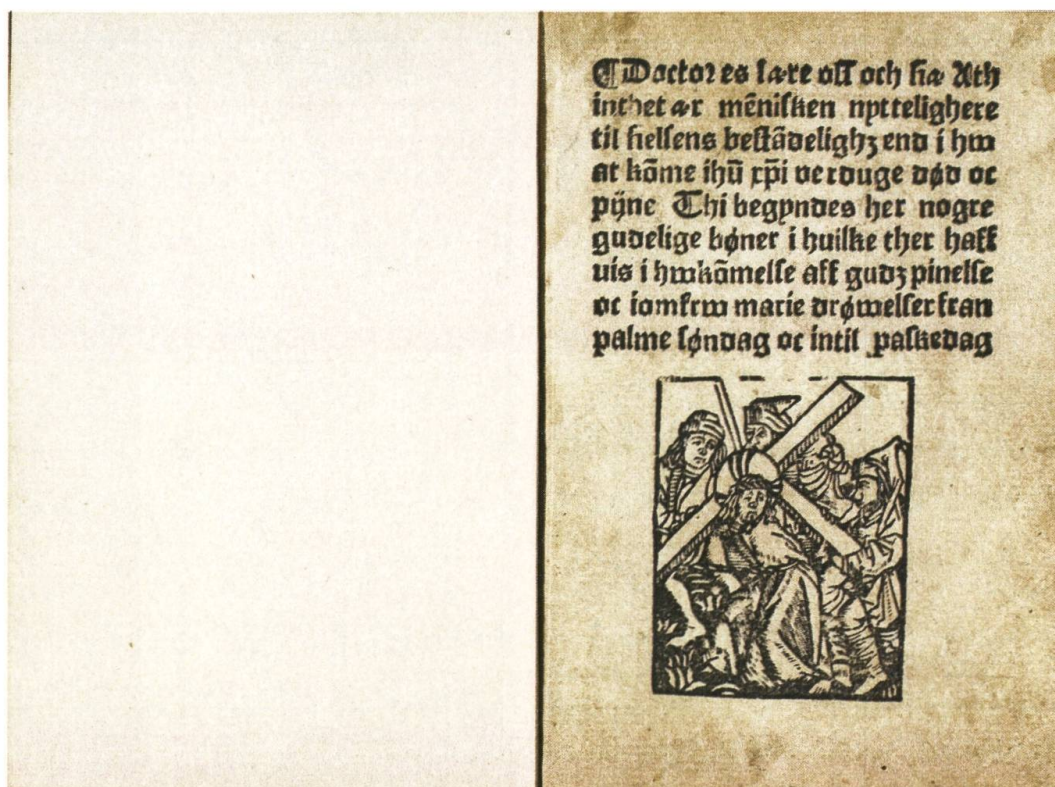 ¶ Doctores lære oss och siæ Ath
inthet ær mēnisken nyttelighere
til sielsens bestādelighʒ end i hw
at kōme ihū xp̄i verduge død oc
pijne Thi begyndes her nogre
gudelige bøner i huilke ther haff
uis i hwkōmelse aff gudʒ pinelse
oc iomfrw marie drøwelser fran
palme søndag oc intil paskedag